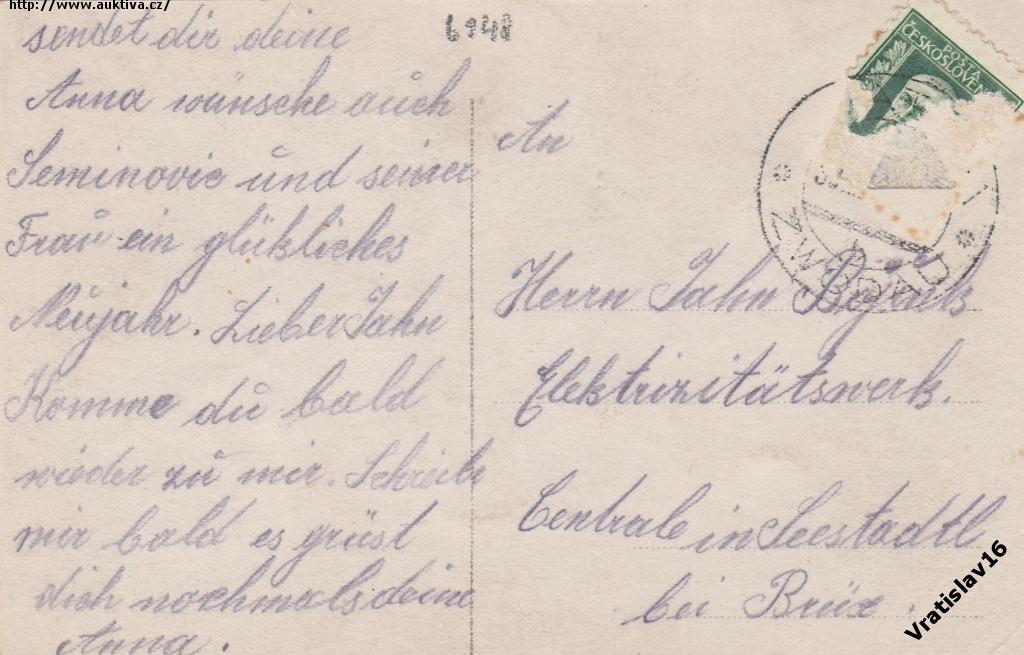 http://www.auktiva.cz/
6948
sendet dir deine
Anna wünsche auch
Seminovic und seiner
Frau ein glükliches
Neujahr. Lieber Jahn
Komme du bald
wieder zu mir. Schreibe
mir bald es grüst
dich nochmals deine
Anna.
POŠTA
ČESKOSLOVE
ZWODAU
An
Herrn Jahn
Elektrizitätswerk.
Centrale in Seestadtl
bei Brüx.
Vratislav16